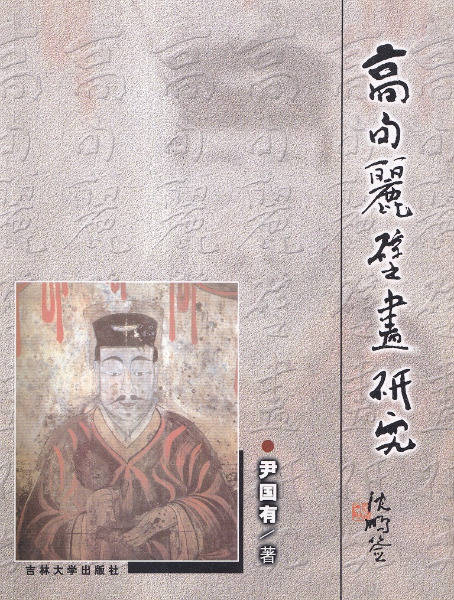 高句麗壁畫研究
沈鹏签
尹国有/著
吉林大学出版社